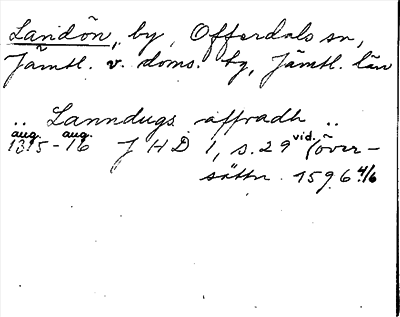 Landön, by, Offerdals sn,
Jämtl. v. doms. tg, Jämtl. län
.. Lanndugs affradh ..
aug. aug. vid.
1315-16 J H D 1, s. 29 (över-
sättn. 1596 4/6